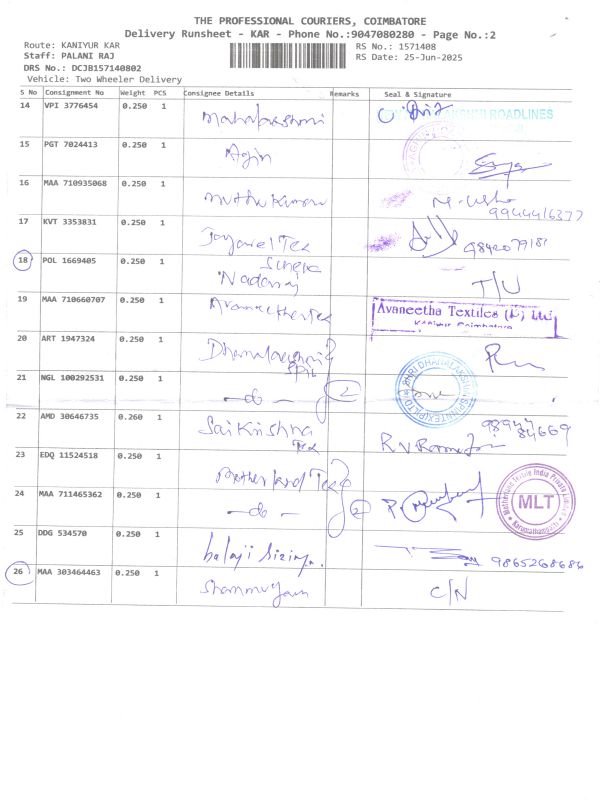 THE PROFESSIONAL COURIERS, COIMBATORE
Delivery Runsheet - KAR - Phone No.:9047080280 - Page No.:2
Route: KANIYUR KAR
RS No.: 1571408
Staff: PALANI RAJ
RS Date: 25-Jun-2025
DRS No.: DCJB157140802
Vehicle: Two Wheeler Delivery
S No Consignment No Weight PCS Consignee Details Remarks Seal & Signature
14 VPI 3776454 0.250 1 Mahalakshmi ROADLINES
15 PGT 7024413 0.250 1 Agin
16 MAA 710935068 0.250 1 Muthu Kumar M. Usha
9944416377
17 KVT 3353831 0.250 1 Jayavel Tex 9842079181
18 POL 1669405 0.250 1 Nadaraj T/U
19 MAA 710660707 0.250 1 Avaneetha Textiles (P) Ltd
Kaniyur Coimbatore
20 ART 1947324 0.250 1 Dhanalakshmi
21 NGL 100292531 0.250 1 -do- 2
22 AMD 30646735 0.260 1 Sai Krishna Tex
23 EDQ 11524518 0.250 1 Motherland Tex
24 MAA 711465362 0.250 1 -do- 2 MLT
25 DDG 534570 0.250 1 balaji 9865268686
26 MAA 303464463 0.250 1 Shanmugam C/N